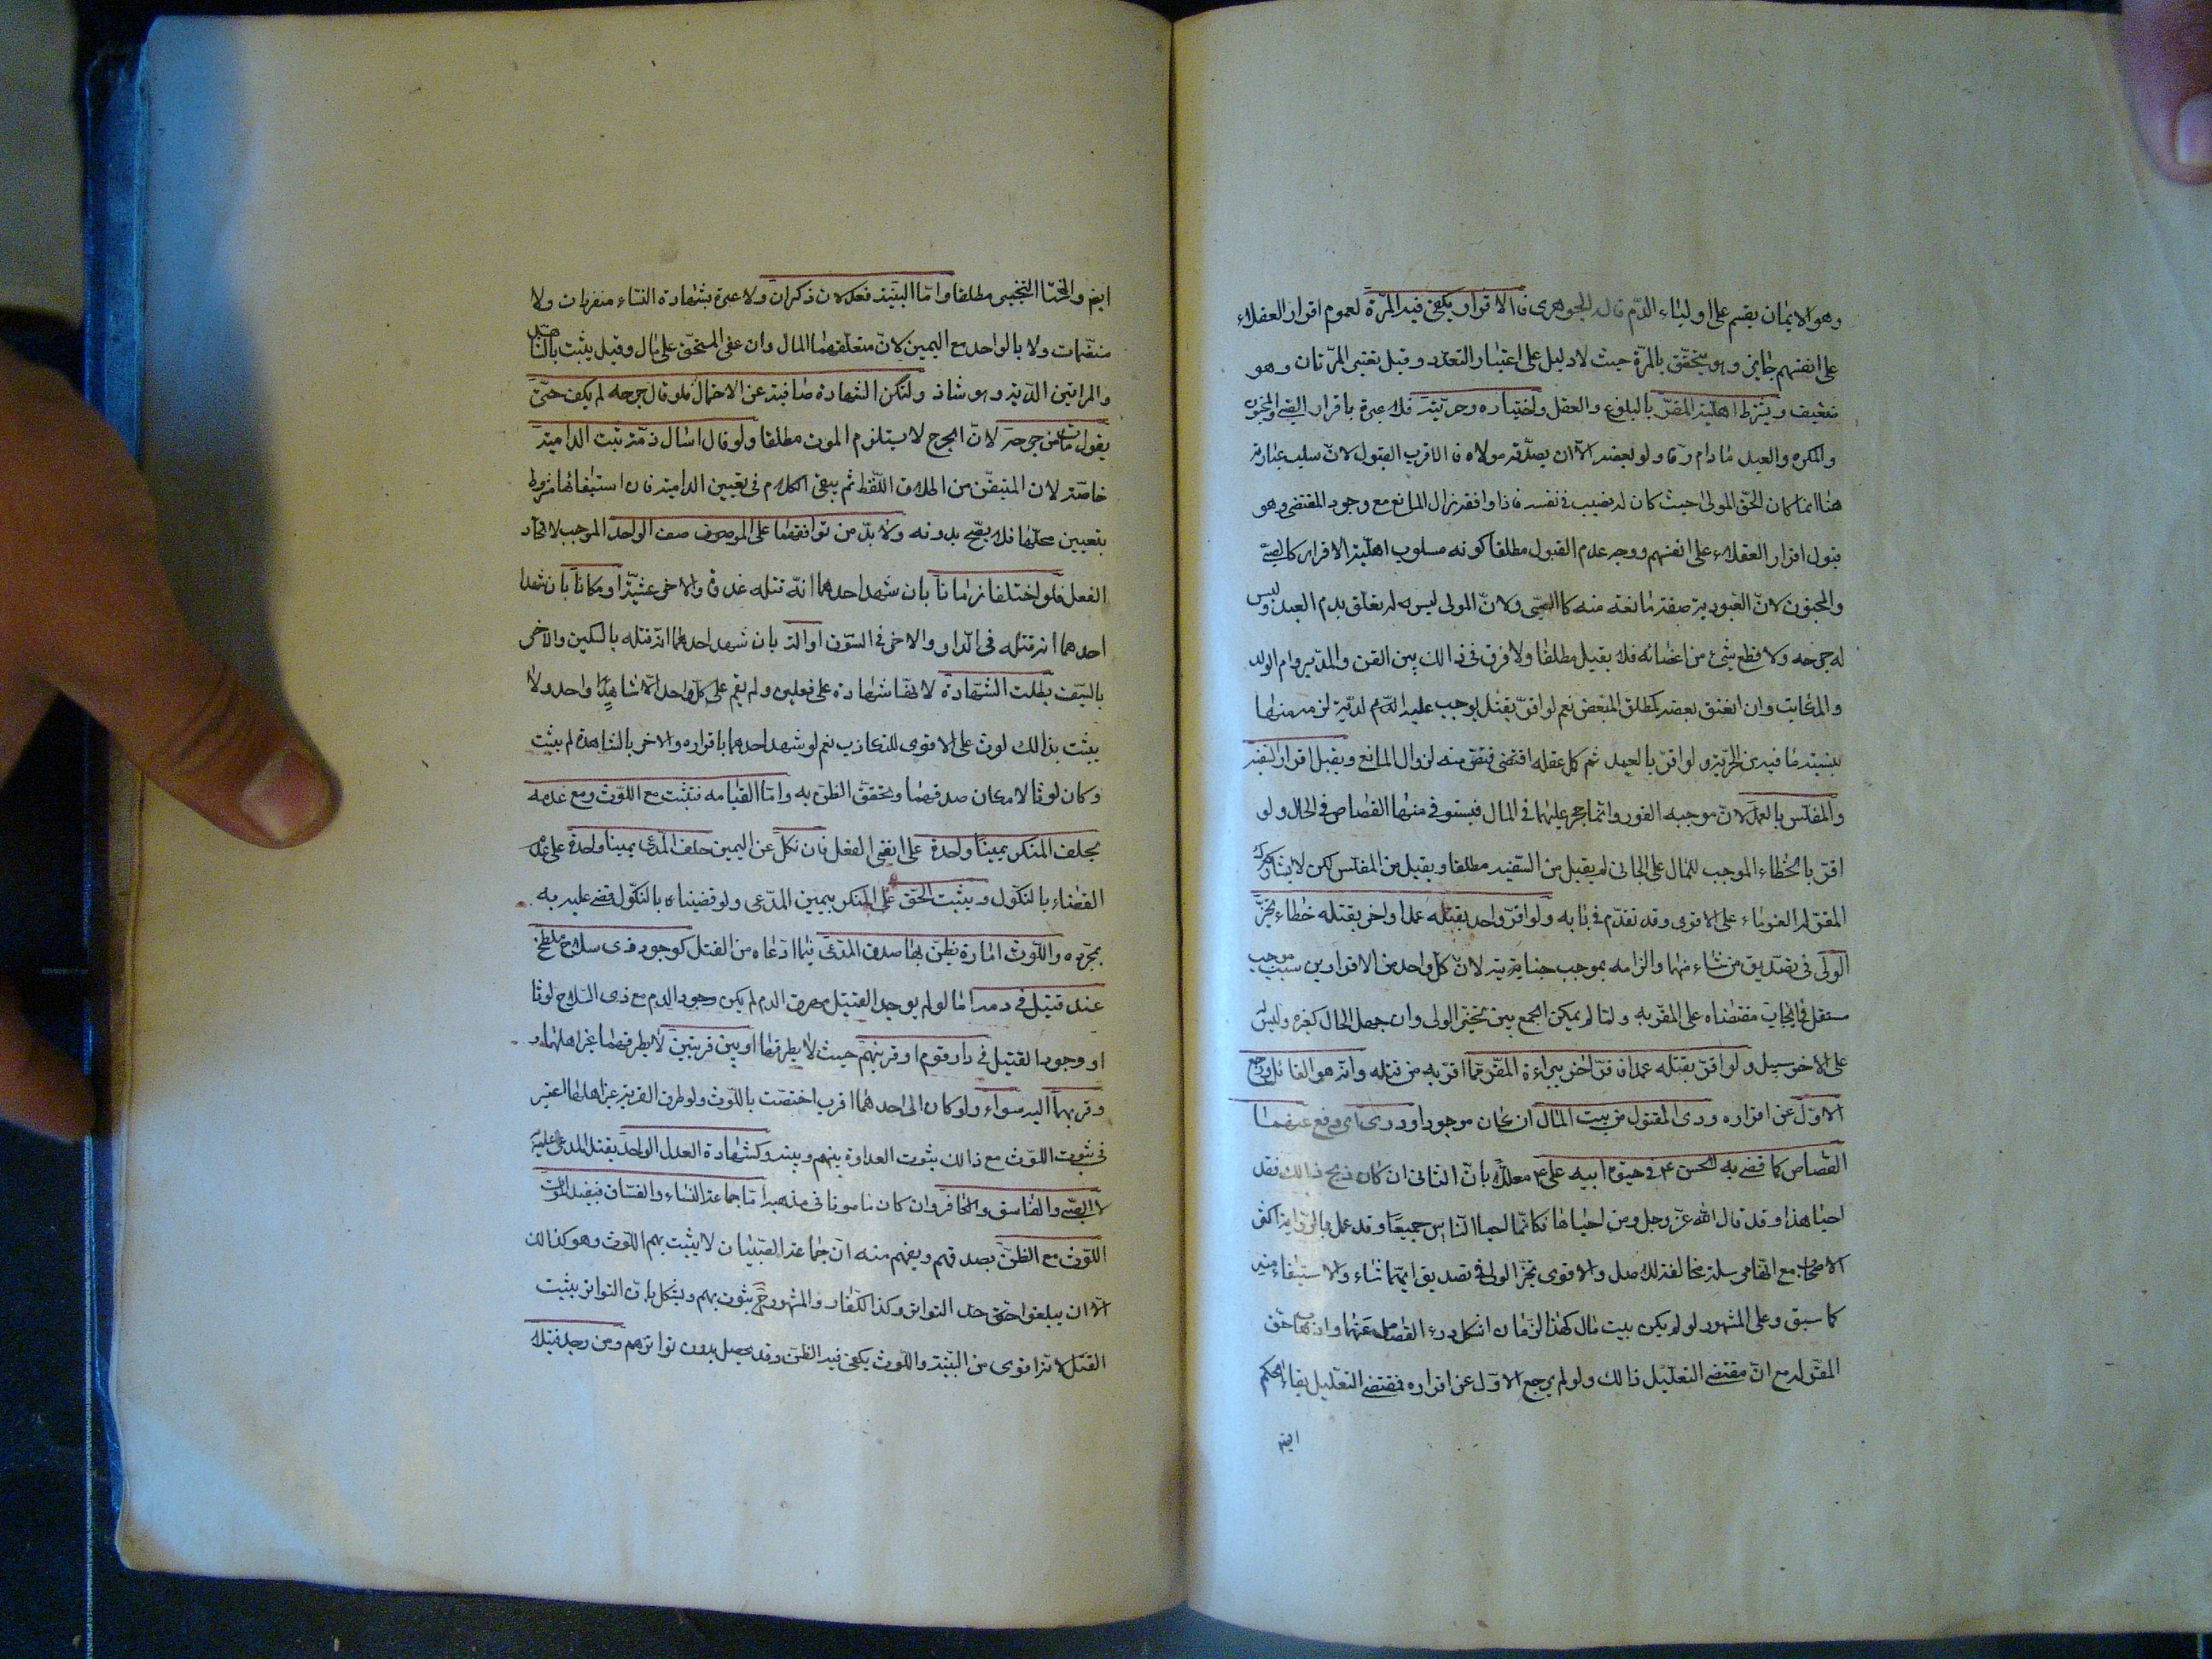 وهو الايمان يقسم على اولياء الدّم قاله الجوهرى فالاقرار يكفى فيه المرّة لعموم اقرار العقلاء
على انفسهم جايز وهو يتحقّق بالمرّة حيث لا دليل على اعتبار التعدد وقيل تعتبر المرّتان وهو
ضعيف ويشترط اهلية المقرّ بالبلوغ والعقل واختياره وحريّته فلا عبرة باقرار الصبى والمجنون
والمكره والعبد ما دام رقا ولو بعضه الّا ان يصدّقه مولاه فالاقرب القبول لانّ سلب عبارته
هنا انما كان لحقّ المولى حيث كان له نصيب فى نفسه فاذا وافقه زال المانع مع وجود المقتضى وهو
قبول اقرار العقلاء على انفسهم ووجه عدم القبول مطلقا كونه مسلوب اهلية الاقرار كالصبىّ
والمجنون لانّ العبودية صفة مانعة منه كالصبىّ ولانّ المولى ليس له تعلق بدم العبد وليس
له جرحه ولا قطع شىء من اعضائه فلا يقبل مطلقا ولا فرق فى ذالك بين القن والمدبر وام الولد
والمكاتب وان انعتق بعضه كمطلق المبعض نعم لو اقرّ بقتل يوجب عليه الدّم لدية لزمه منها
بنسبته ما فيه من الحرّية ولو اقرّ بالعمد ثم كمل عقله اقتصّ منه لزوال المانع ويقبل اقرار السفيه
والمفلس بالعمد لانّ موجبه القود وانّما حجر عليهما فى المال فيستوفى منهما القصاص فى الحال ولو
اقرّ بالخطاء الموجب للمال على الجانى لم يقبل من السّفيه مطلقا ويقبل من المفلس لكن لا يشارك
المقرّ له الغرماء على الاقوى وقد تقدّم فى بابه ولو اقرّ واحد بقتله عمدا واخر بقتله خطاء تخيّر
الولى فى تصديق من شاء منهما والزامه بموجب جنايته لانّ كلّ واحد من الاقرارين سبب موجب
مستقل فى ايجاب مقتضاه على المقرّ به ولمّا لم يمكن الجمع بين تخيّر الولى وان جهل الحال كغيره وليس له
على الاخر سبيل ولو اقرّ بقتله عمدا فاقرّ اخر ببراءة المقرّ ممّا اقرّ به من قتله وانّه هو القاتل ورجع
الاوّل عن اقراره ودى المقتول من بيت المال ان كان موجودا ودرئ اى رفع عنهما
القصاص كما قضى به الحسن ع فى حيوة ابيه على ع معلّلا بانّ الثانى ان كان ذبح ذالك فقد
احيا هذا وقد قال الله عزّ وجل ومن احياها فكانّما احيا النّاس جميعًا وقد عمل بالرواية اكثر
الاصحاب مع انها مرسلة مخالفة للاصل والاقوى تخيّر الولى فى تصديق ايّهما شاء والاستيفاء منه
كما سبق وعلى المشهور لو لم يكن بيت مال كهذا الزمان اشكل درء القصاص عنهما واذهاب حق
المقرّ له مع انّ مقتضى التعليل ذالك ولو لم يرجع الاوّل عن اقراره فمقتضى التعليل بقاء الحكم
ايضا
ايضا والمختار التخيير مطلقا وامّا البيّنة فعدلان ذكران ولا عبرة بشهادة النساء منفردات ولا
منضمّات ولا بالواحد مع اليمين لانّ متعلّقهما المال وان عفى المستحقّ على مال وقيل يثبت بالشاهد
والمراتين الدّية وهو شاذ ولتكن الشهادة صافية عن الاحتمال فلو قال جرحه لم يكف حتىّ
يقول مات من جرحه لانّ الجرح لا يستلزم الموت مطلقا ولو قال اسال دمه ثبت الدامية
خاصّة لان المتيقّن من اطلاق اللّفظ ثم يبقى الكلام فى تعيين الدامية فان استيفائها مشروط
بتعيين محلّها فلا يصّح بدونه ولابدّ من توافقهما على الموصوف صف الواحد الموجب لاتحاد
الفعل فلو اختلفا زمانا بان شهد احدهما انّه قتله غدوة والاخر عشيّة او مكانا بان شهد
احدهما انه قتله فى الدار والاخر فى السّوق او الة بان شهد احدهما انّه قتله بالسكين والاخر
بالسّيف بطلت الشّهادة لانها شهادة على فعلين ولم يقم على كل واحد الّا شاهد واحد ولا
يثبت بذالك لوث على الاقوى للتكاذب نعم لو شهد احدهما باقراره والاخر بالمشاهدة لم يثبت
وكان لوثا لامكان صدقهما وتحقق الظنّ به وامّا القسامه فتثبت مع اللّوث ومع عدمه
يحلف المنكر يمينا واحدة على نفى الفعل فان نكل عن اليمين حلف المدّعى يمينا واحدة على عدم
القضاء بالنكول ويثبت الحّق على المنكر بيمين المدّعى ولو قضينا بالنّكول قضى عليه به
بمجرّده واللّوث امارة يظنّ بها صدق المدّعى فيما ادّعاه من القتل كوجود ذى سلاح ملطخ
عند قتيل فى دمه اما لو لم يوجد القتيل مهرق الدم لم يكن وجود الدم مع ذى السّلاح لوثا
او وجود القتيل فى دار قوم او قريتهم حيث لا يطرقها او بين قريتين لا يطرقهما غير اهلهما و
وقربهما اليه سواء ولو كان الى احدهما اقرب اختصّت باللّوث ولو طرق القرية غير اهلها اعتبر
فى ثبوت اللّوث مع ذالك ثبوت العداوة بينهم وبينه وكشهادة العدل الواحد بقتل المدعى عليه به
لا الصبى والفاسق والكافر وان كان مامونا فى مذهبه امّا جماعة النساء والفسّاق فيفيد
اللّوث مع الظنّ بصدقهم ويفهم منه انّ جماعة الصّبيان لا يثبت بهم اللّوث وهو كذالك
الّا ان يبلغوا حدّ التواتر وكذا الكفّار والمشهور ثبوته بهم ويشكل بانّ التواتر يثبت
القتل لانّه اقوى من البيّنة واللّوث يكفى فيه الظنّ وقد يحصل بدون تواترهم ومن وجد قتيلا